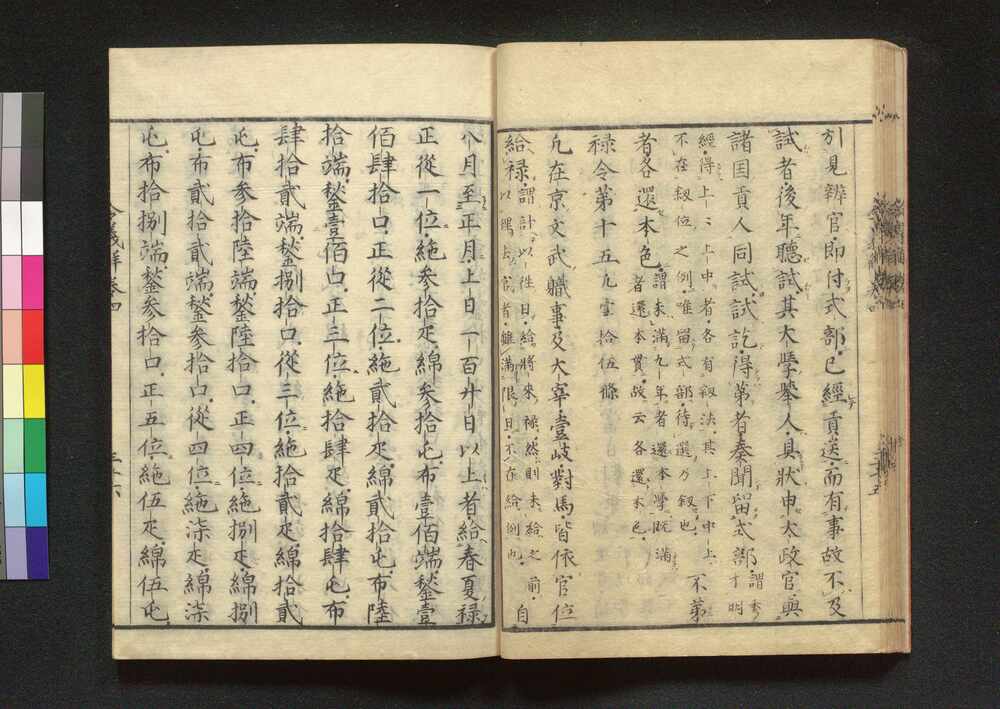 引見辨官即付式部已經貢送而有事故不及
試者後年聽試其大學擧人具狀申太政官與
諸国貢人同試試訖得第者奏聞留式部謂秀才明
經得上々上中者各有叙法其上下中上
不在叙位之例唯留式部待選乃叙也不第
者各還本色謂未滿九年者還本學既滿
者還本貫故云各還本色
禄令第十五凢壹拾伍條
凢在京文武職事及大宰壹岐對馬皆依官位
給禄謂計以往日給將來禄然則未給之前
以遷官者雖滿限日不在給例也自
八月至正月上日一百廿日以上者給春夏禄
正從一位絁参拾疋綿参拾屯布壹佰端鍫壹
佰肆拾口正從二位絁貳拾疋綿貳拾屯布陸
拾端鍫壹佰口正三位絁拾肆疋綿拾肆屯布
肆拾貳端鍫捌拾口從三位絁拾貳疋綿拾貳
屯布参拾陸端鍫陸拾口正四位絁捌疋綿捌
屯布貳拾貳端鍫参拾口從四位絁柒疋綿柒
屯布拾捌端鍫参拾口正五位絁伍疋綿伍屯
令義解巻四
三十六